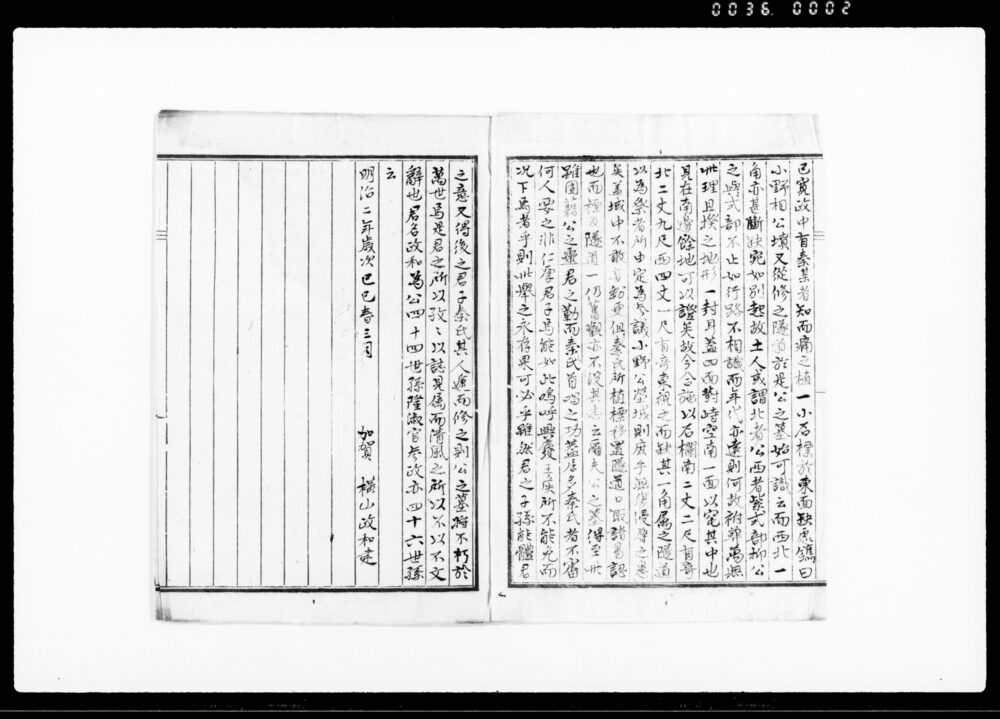 0036. 0002
已寛政中有秦某者知而痛之植一小石標於東面缺處鐫曰
小野相公墳又從修之隧道於是公之墓始可識云而西北一
角亦甚斷缺宛如別起故土人或謂北者公西者紫式部抑公
之與式部不止如行路不相識而年代亦遠則何故祔葬萬無
此理且揆之地形一封耳蓋四面對峙空南一面以窆其中也
見在南邊餘地可以證矣故今合施以石欄南二丈二尺有奇
北二丈九尺西四丈一尺有奇東視之而缺其一角属之隧道
以為祭者所由定為參議小野公塋域則庶乎無復侵
矣墓域中不敢 更但秦氏所植標移置隧道口取諸易認
也而 隧道一仍舊觀亦不没其 云爾夫公之墓得至此
雖固籍公之靈君之勤而秦氏首唱之功蓋居多秦氏者不審
何人要之非仁厚君子焉能如此嗚呼興廢 所不能免而
况下焉者乎則此舉之永存果可必乎雖然君之子孫能體君
之意又得後之君子秦氏其人 而修之則公之墓将不朽於
萬世焉是君之所以孜〻以誌見属而清風之所以不以不文
辭也君名政和為公四十四世孫隆淑官參政亦四十六世孫
云
明治二年歳次己巳春三月
加賀 横山政和建